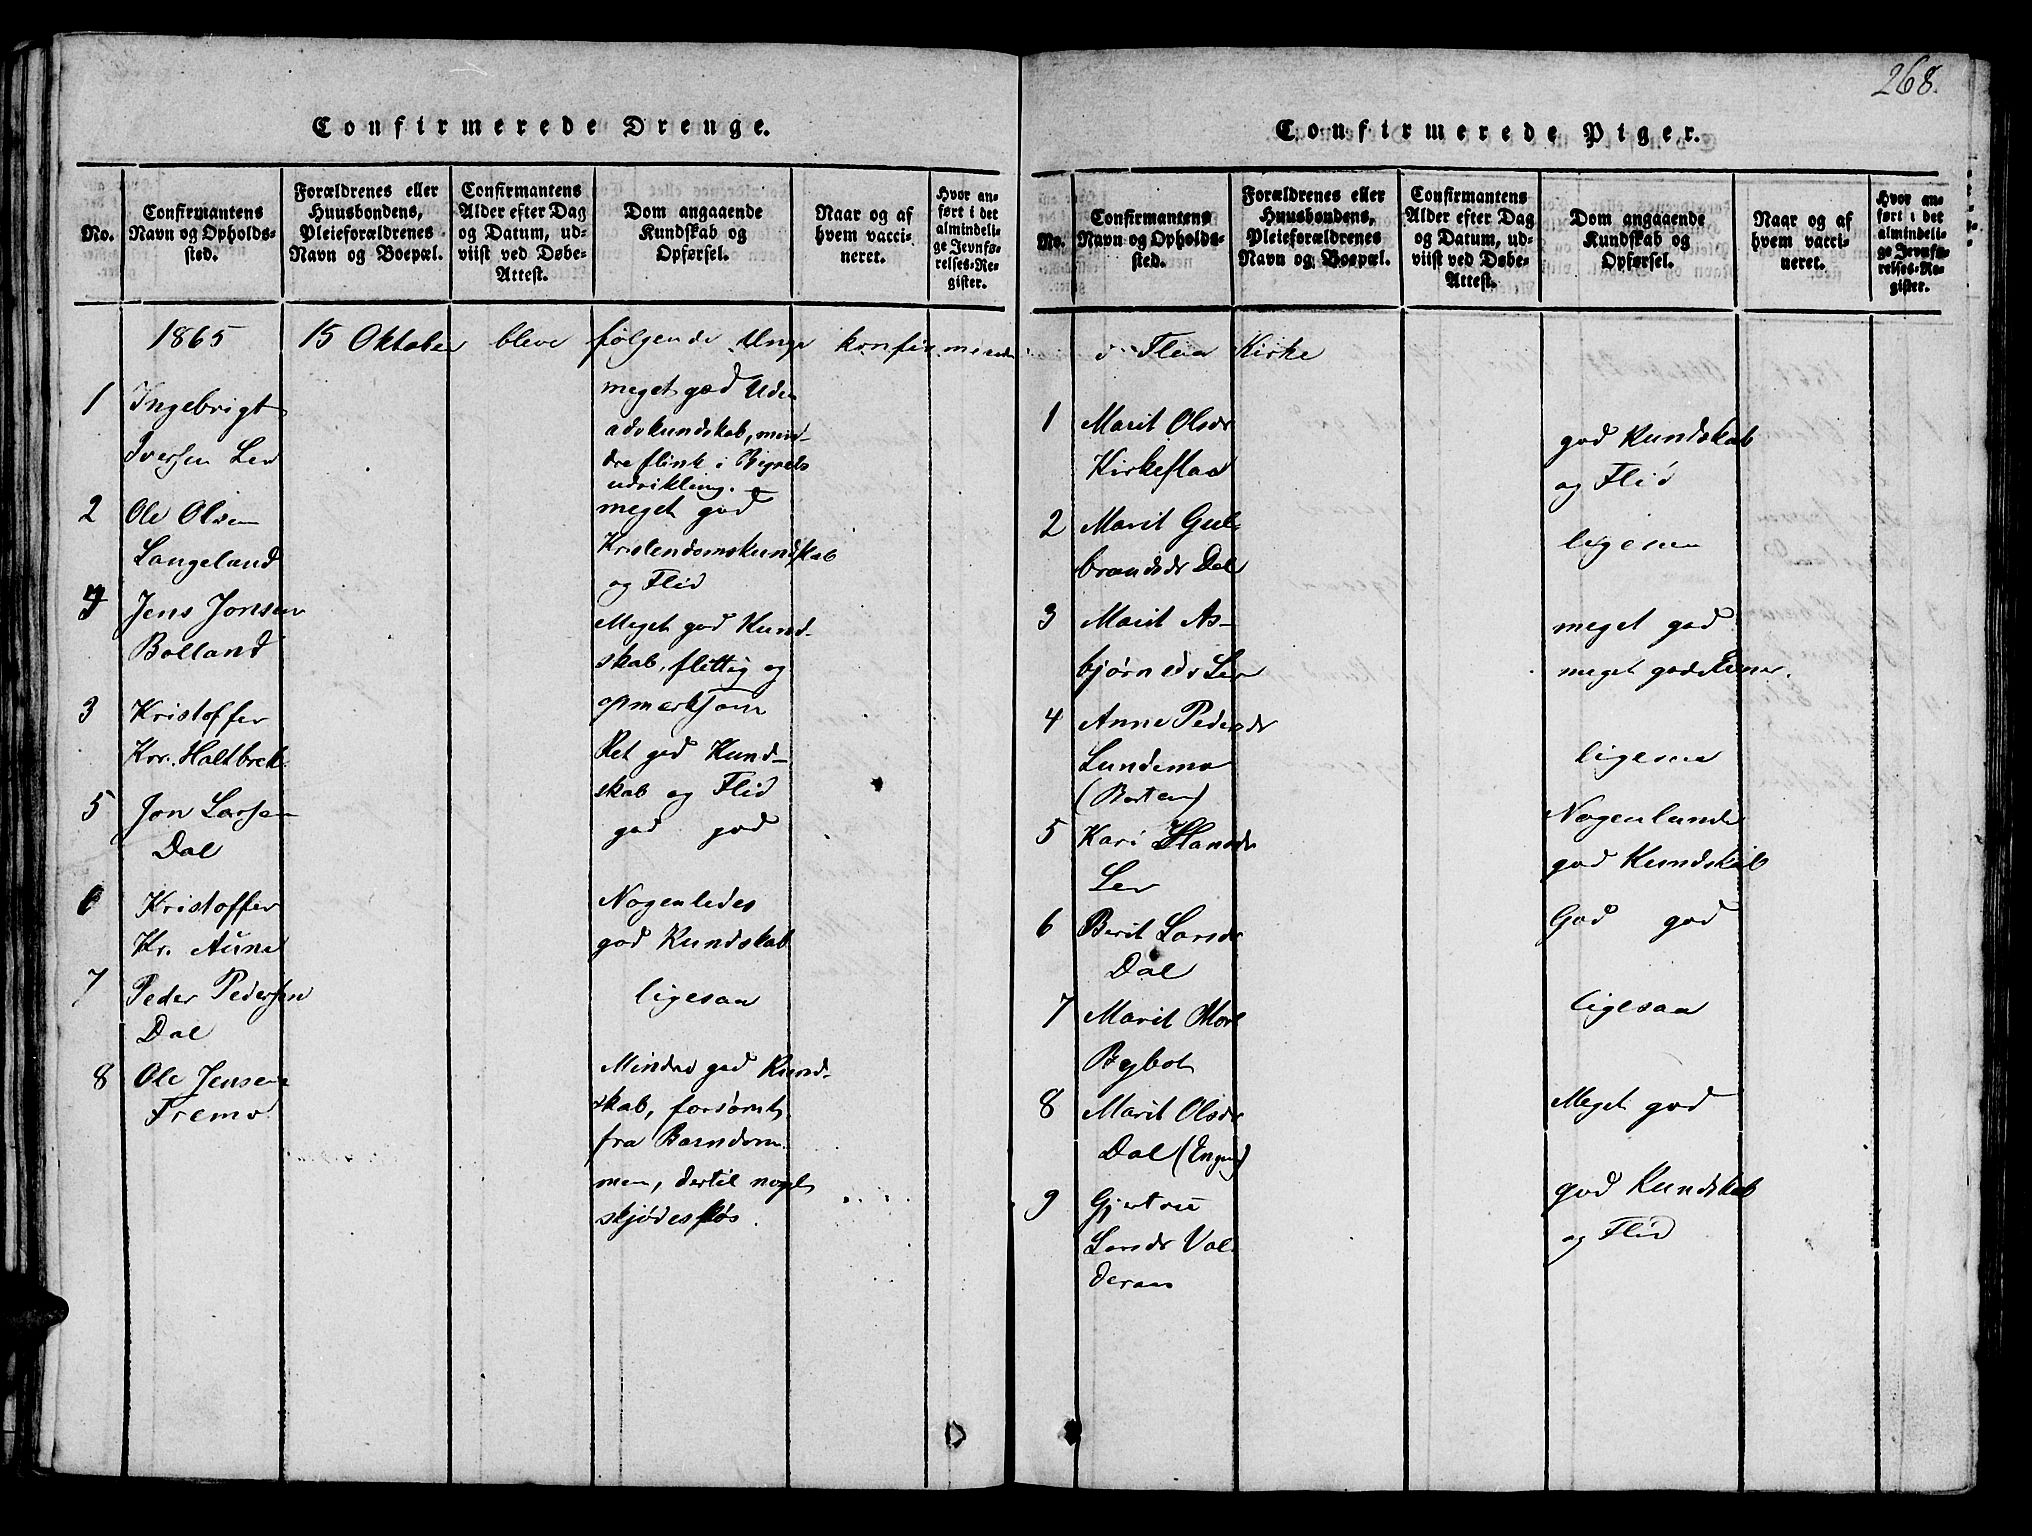 268.
Confirmerede Drenge.
No.
Confirmantens Navn og Opholds-sted.
Forældrenes eller Huusbondens, Pleieforældrenes Navn og Boepæl.
Confirmantens Alder efter Dag og Datum, ud-viist ved Døbe-Attest.
Dom angaaende Kundskab og Opførsel.
Naar og af hvem vacci-neret.
Hvor an-ført i det almindeli-ge Jevnfø-relses-Re-gister.
1865 15 Oktober bleve følgende Unge konfirmerede
1 Ingebrigt
Iversen Ler
meget god Uden
adskundskab, min-
dre flink i Begrebs
udvikling.
2 Ole Olsen
Langeland
meget god
Kristendomskundskab
og Flid
4 Jens Jonsen
Bolland
Meget god Kund-
skab, flittig og
opmerksom
3 Kristoffer
Kr. Haltbrek
Ret god Kund-
skab og Flid
5 Jon Larsen
Dal
god god
6 Kristoffer
Kr. Aune
Nogenledes
god Kundskab
7 Peder Pedersen
Dal
ligesaa
8 Ole Jensen
Fremo
Mindre god Kund-
skab, forsømt
fra Barndom
men, dertil noget
skjødesløs.
Confirmerede Piger.
No.
Confirmantens Navn og Opholds-sted.
Forældrenes eller Huusbondens, Pleieforældrenes Navn og Boepæl.
Confirmantens Alder efter Dag og Datum, ud-viist ved Døbe-Attest.
Dom angaaende Kundskab og Opførsel.
Naar og af hvem vacci-neret.
Hvor an-ført i det almindeli-ge Jevnfø-relses-Re-gister.
i Flaa Kirke
1 Marit Olsdr
Kirkeflaa
god Kundskab
og Flid
2 Marit Gul-
brandsdr Dal
ligesaa
3 Marit As-
bjørnsdr Ler
meget god
meget gode Evner.
4 Anne Pedersdr
Lundemo
(Borten)
ligesaa
5 Kari Hansdr
Ler
Nogenlunde
god Kundskab
6 Berit Larsdr
Dal
God god
7 Marit
Bybot
ligesaa
8 Marit Olsdr
Dal (Engen)
Meget god
9 Gjertrue
Larsdr Val-
deraas
god Kundskab
og Flid